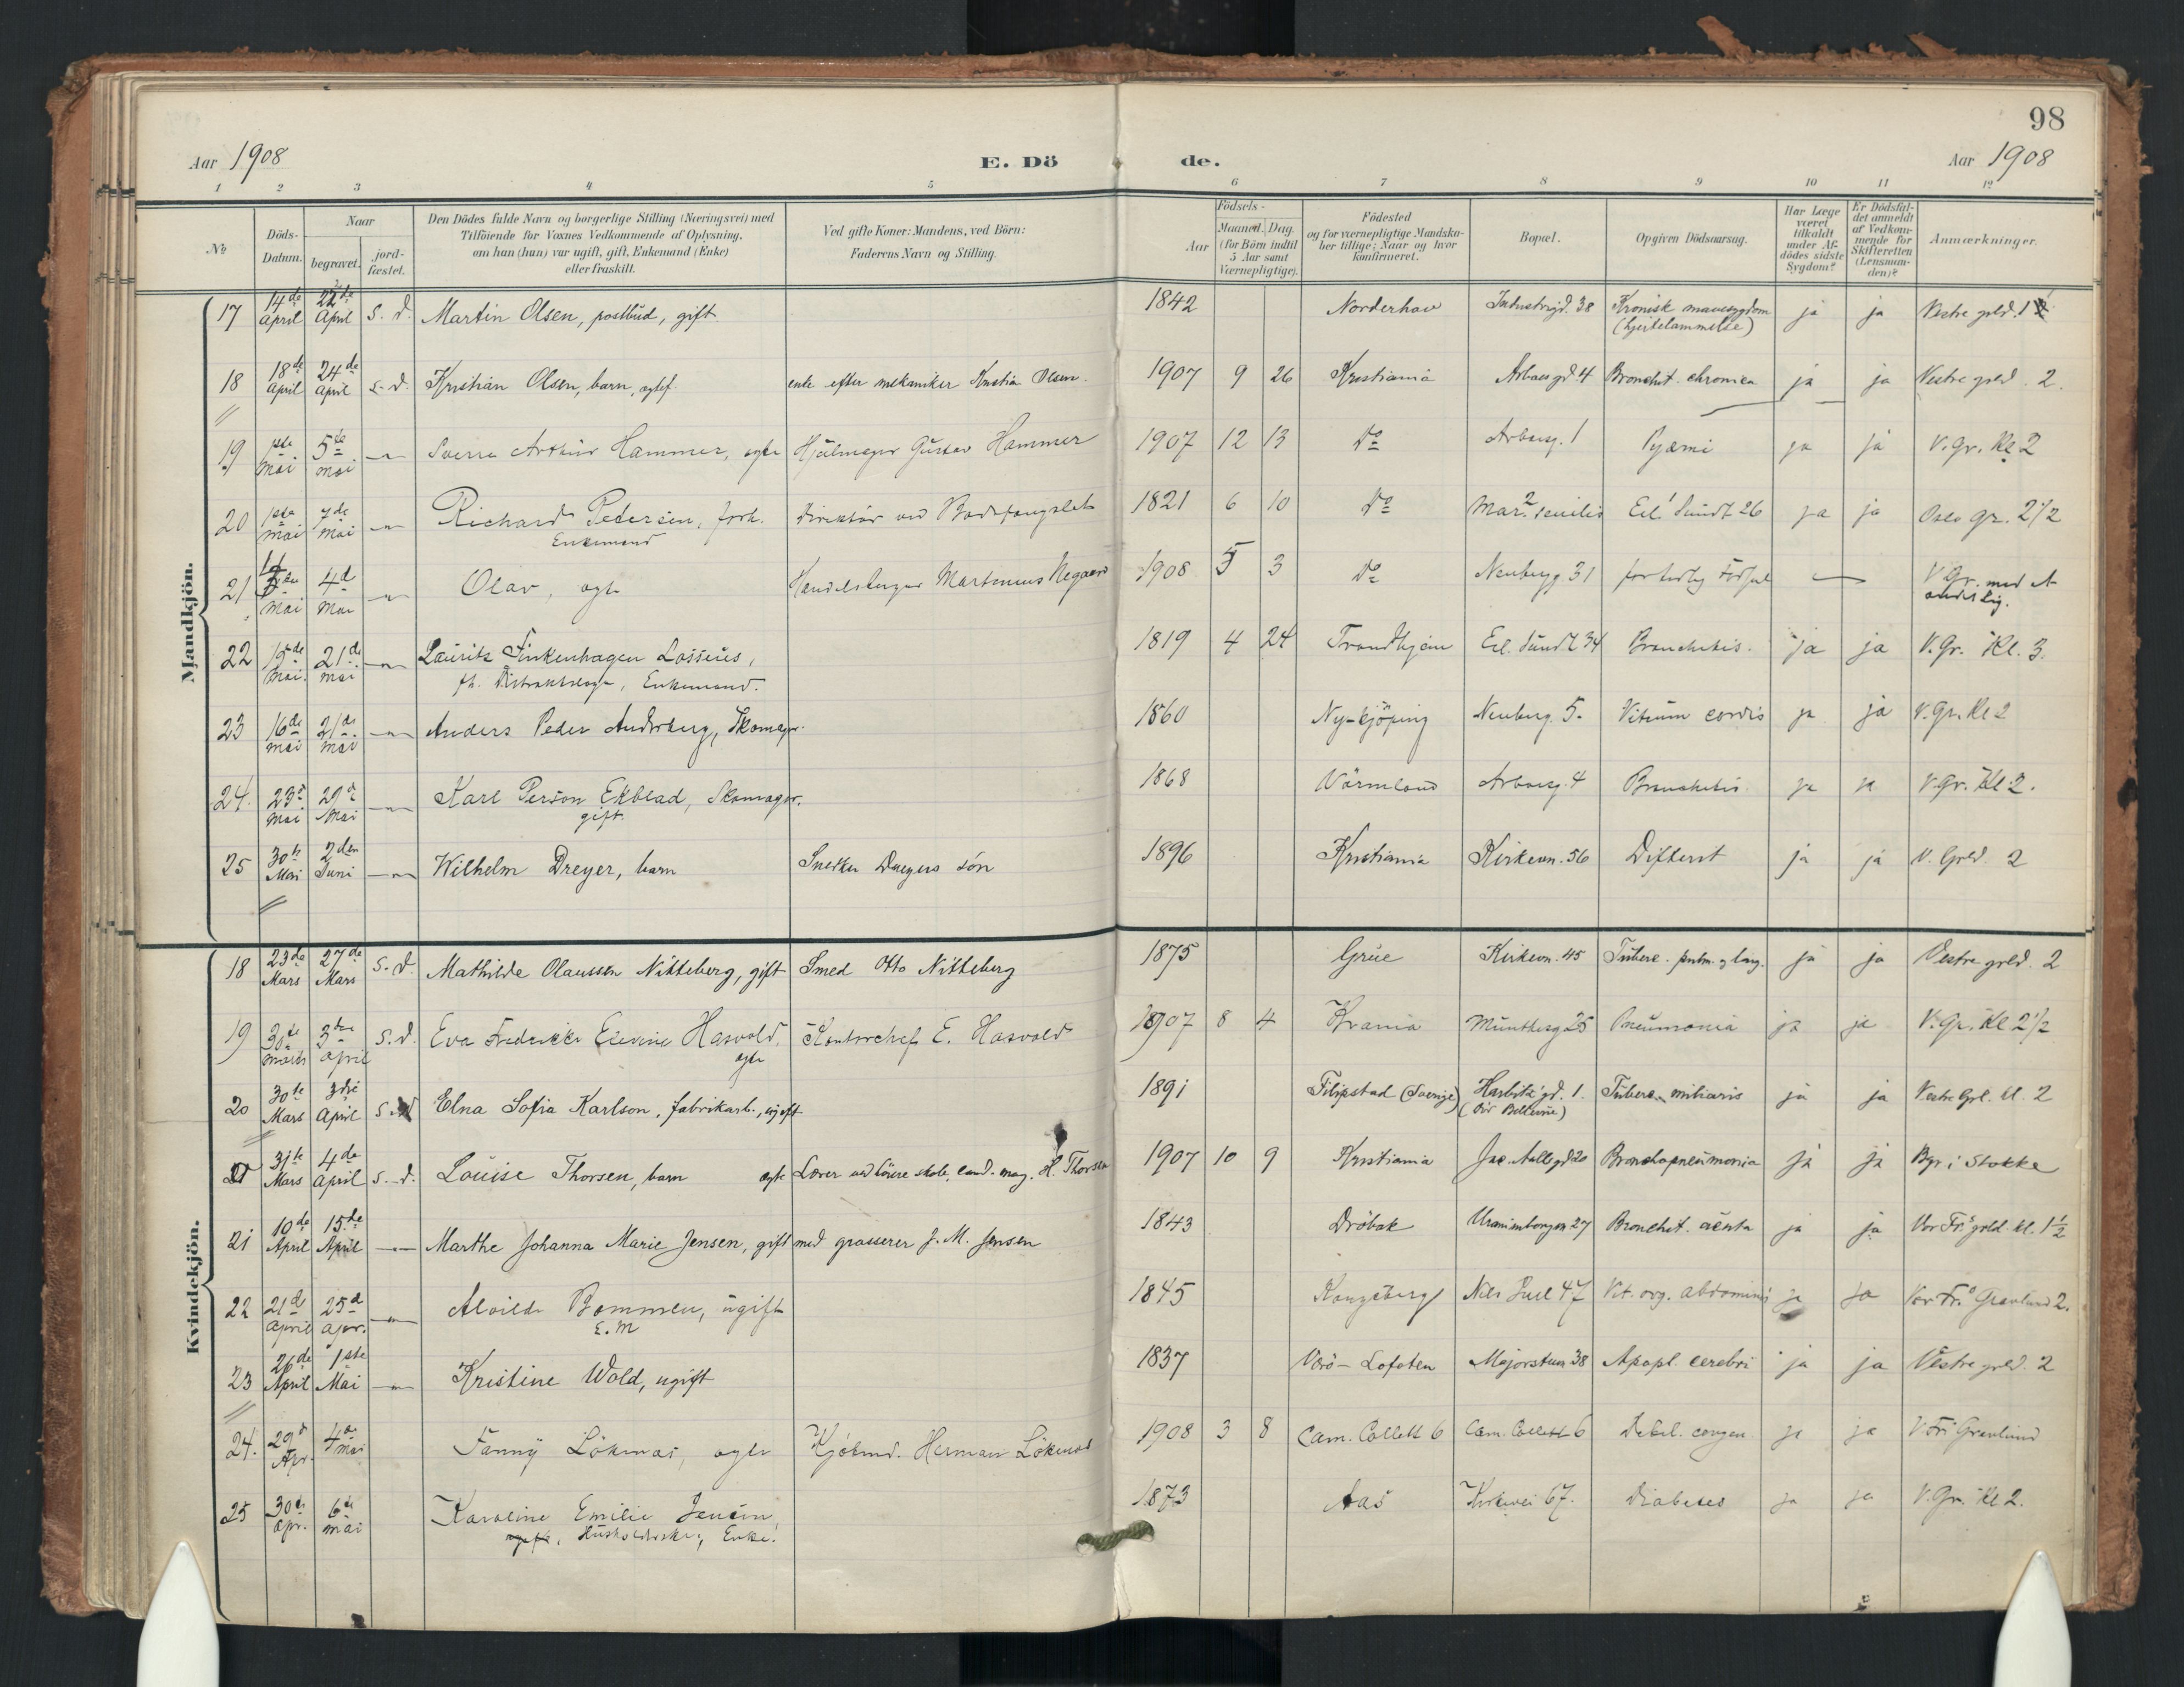 98
Aar 1908 E. Dö de. Aar 1908
1 2 3 4 5 6 7 8 9 10 11 12
№
Döds-Datum.
Naar
begravet.
jord-fæstet.
Den Dödes fulde Navn og borgerlige Stilling (Næringsvei) med
Tilföiende for Voxnes Vedkommende af Oplysning,
om han (hun) var ugift, gift, Enkemand (Enke)
eller fraskilt.
Ved gifte Koner: Mandens, ved Börn:
Faderens Navn og Stilling.
Födsels-
Aar
Maaned. Dag.
(for Börn indtil
5 Aar samt
Værnepligtige).
Födested
og for værnepligtige Mandska-
ber tillige: Naar og hvor
konfirmeret.
Bopæl.
Opgiven Dödsaarsag.
Har Læge
været
tilkaldt
under Af-
dödes sidste
Sygdom?
Er Dödsfal-
det anmeldt
af Vedkom-
mende for
Skifteretten
(Lensman-
den)?
Anmærkninger.
Mandkjön.
17 14de April 22de April S. d. Martin Olsen, postbud, gift 1842 Norderhov Industrigd. 38 Kronisk mavesygdom (hjertelammelse) ja ja Vestre grld. 1
18 18de April 24de April S. d. Kristian Olsen, barn, egtef. enke efter mekaniker Kristian Olsen. 1907 9 26 Kristiania Arboesgd. 4 Bronchit. chronica ja ja Vestre grld. 2.
19 1ste Mai 5te Mai Sverre Arthur Hammer, egte Hjulmager Gustav Hammer 1907 12 13 Do Arboesg. 1 Pyæmi ja ja V. Gr. Kl 2
20 1ste Mai 7de Mai Richard Petersen, forh. Enkemand Direktör ved Bodsfængslet 1821 6 10 Do Mar. senilis Eil. Sundt 26 ja ja Oslo Gr. 2 1/2
21 Mai 4d Mai Olav, egte Martinius Negaard 1908 5 3 Do Neubergg 31 for tidlig Födsel V Gr. med et andet Lig.
22 15de Mai. 21de Mai Lauritz Finkenhagen Lossius, fh. Distriktslæge, Enkemand. 1819 4 24 Trondhjem Eil. Sundt 34 Bronchitis. ja ja V. Gr. Kl. 3.
23 16de Mai 21de Mai Anders Peder Anderberg, Skomager. 1860 Ny-kjöping Neuberg. 5. Vitium cordis ja ja V. Gr. Kl 2
24. 23d Mai 29d Mai Karl Person Ekblad, Skomager. gift. 1868 Värmland Arboesg. 4 Bronchitis ja ja V. Gr. Kl 2.
25 30te Mai 2den Juni Wilhelm Dreyer, barn Snedker Dreyers sön 1896 Kristiania Kirkevn. 56 Difterit ja ja V. Grld. 2
Kvindekjön.
18 23de Mars 27de Mars S. d. Mathilde Olaussen Nitteberg, gift Smed Otto Nitteberg 1875 Grue Kirkevn. 45 Tuberc. pulm. g lary. ja ja Vestre grld. 2
19 30te Marts 3die April S. d. Eva Fredrikke Elevine Hasvold, egte Kontorchef E. Hasvold 1907 8 4 Krania Munthesg 25 Pneumonia ja ja V. Gr. Kl 2 1/2
20 30te Mars 3die April S. d. Elna Sofia Karlson, fabrikarb., ugift 1891 Filipstad (Sverige) Harbitz'gd. 1. Tuberc. miliaris ja ja Vestre Grl. kl. 2
21 31te Mars 4de April S. d. Louise Thorsen, barn egte Lærer ved höiere skole, cand. mag. H. Thorsen 1907 10 9 Kristiania Jac. Aallsgd 20 Bronchopneumonia ja ja Bgr. i Stokke
21 10de April 15de April Marthe Johanna Marie Jensen, gift med grosserer J. M. Jensen 1843 Dröbak Uranienborgvn 27 Bronchit. acuta ja ja Vor Fr.s grld. kl. 1 1/2
22 21d April 25d Apr. Alvilde Bommen, ugift E. M 1845 Kongsberg Nils Juel 47 Vit. org. abdominis ja ja Vor Fr.s Gravlund 2.
23 26de April 1ste Mai Kristine Wold, ugift 1837 Værö - Lofoten Majorstuen 38 Apopl. cerebri ja ja Vestre grld. 2
24. 29d Apr. 4de Mai Fanny Lökmoi, egte Kjöbmd. Herman Lökmoi 1908 3 8 Cam. Collett 6 Cam. Collett 6 Debil. congen. ja ja V Frs Gravlund
25 30de Apr. 6te Mai Karoline Emilie Jensen, Husholderske, Enke. 1873 Aas Kirkevei 67. Diabetes ja ja V. Gr. Kl 2.